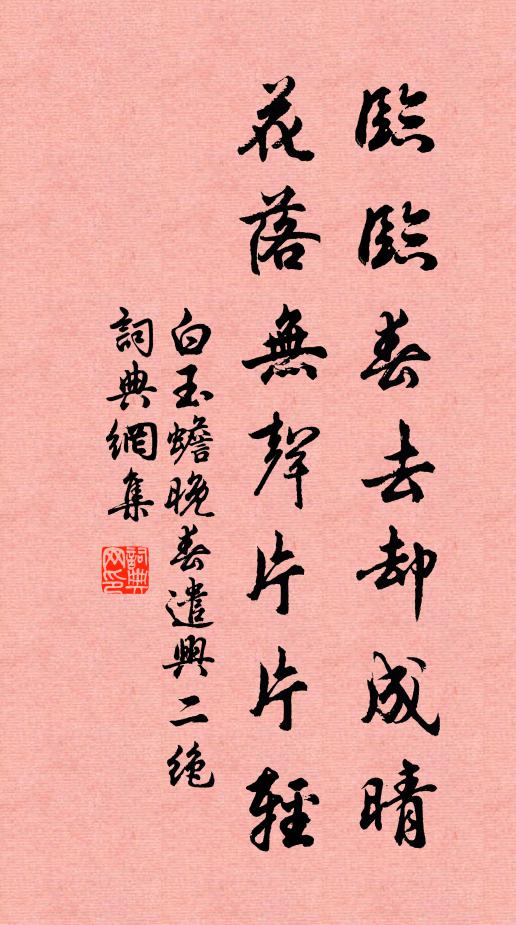 臨臨春去却成晴
花落無聲片片輕
白玉蟾晚春遣興二絶
詞典網集
詞典網印